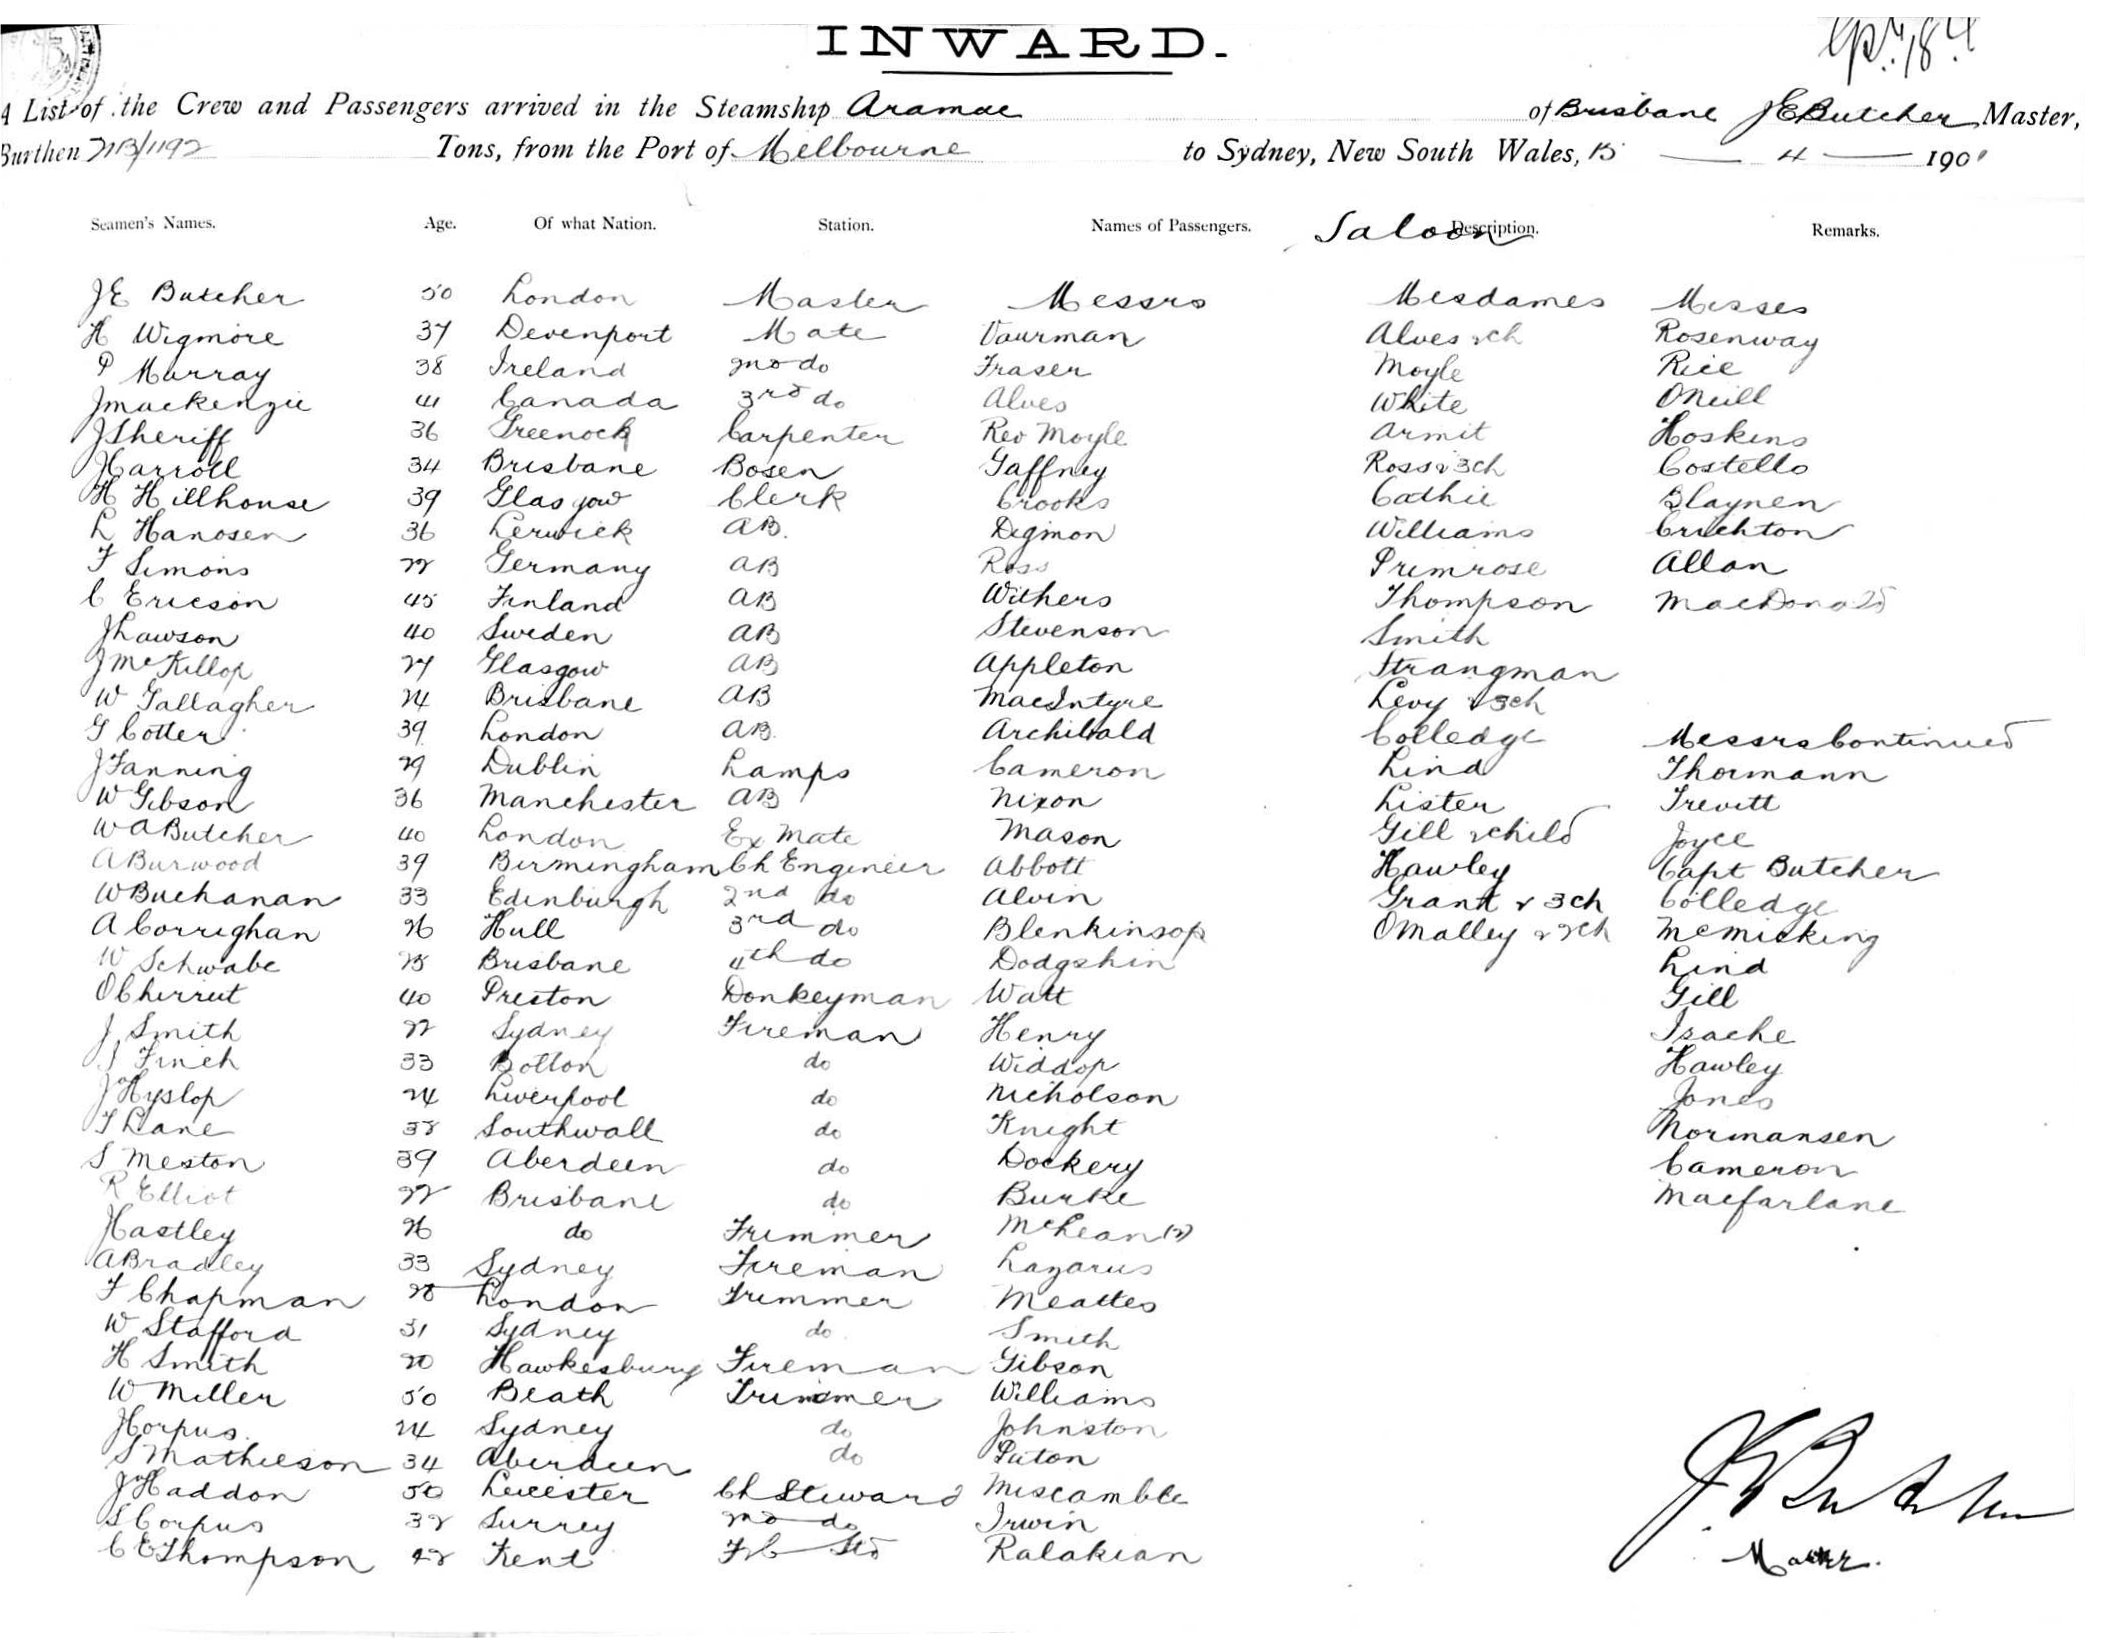 INWARD.
A List of the Crew and Passengers arrived in the Steamship Aramac of Brisbane J E Butcher Master,
Burthen Tons, from the Port of Melbourne to Sydney, New South Wales, 15 4 1901
Seamen's Names. Age. Of what Nation. Station. Names of Passengers. Saloon Description. Remarks.
J E Butcher 50 London Master Messrs Mesdames Misses
H Wigmore 37 Devenport Mate Vaurman Alves & ch Rosenway
P Murray 38 Ireland 2nd do Fraser Moyle Rice
J Mackenzie 41 Canada 3rd do Alves White ONeill
J Sheriff 36 Greenock Carpenter Rev Moyle Armit Hoskins
J Carroll 34 Brisbane Bosen Gaffney Ross & 3ch Costello
H Hillhouse 39 Glasgow Clerk Crooks Cathie Blaynen
L Hanosen 36 Lerwick AB. Degmon Williams Crichton
F Simons 22 Germany AB Ross Primrose Allan
C Ericson 45 Finland AB Withers Thompson MacDonald
J Lawson 40 Sweden AB Stevenson Smith
J McKillop 27 Glasgow AB Appleton Strangman
W Gallagher 24 Brisbane AB MacIntyre Levy & 3ch
G Cotter 39 London AB. Archibald Colledge Messrs Continued
J Fanning 29 Dublin Lamps Cameron Lind Thormann
W Gibson 36 Manchester AB Nixon Lister Trevitt
W A Butcher 40 London Ex Mate Mason Gill & child Joyce
A Burwood 39 Birmingham Ch Engineer Abbott Hawley Capt Butcher
W Buchanan 33 Edinburgh 2nd do Alvin Grant & 3ch Colledge
A Corrighan 26 Hull 3rd do Blenkinsop OMalley & 2ch McMicking
W Schwabe 25 Brisbane 4th do Dodgshin Lind
O Cherrut 40 Preston Donkeyman Watt Gill
J Smith 22 Sydney Fireman Henry Isache
J Finch 33 Bolton do Widdop Hawley
J Hyslop 24 Liverpool do Nicholson Jones
T Lane 38 Southwall do Knight Normansen
S Meston 39 Aberdeen do Dockery Cameron
R Elliot 22 Brisbane do Burke Macfarlane
J Castley 26 do Trimmer McLean (2)
A Bradley 33 Sydney Fireman Lazarus
F Chapman 28 London Trimmer Meattes
W Stafford 31 Sydney do Smith
H Smith 20 Hawkesbury Fireman Gibson
W Miller 50 Beath Trimmer Williams
J Corpus 24 Sydney do Johnston
S Mathieson 34 Aberdeen do Paton
J Haddon 50 Leicester Ch Steward Miscamble
S Corpus 32 Surrey 2nd do Irwin
C E Thompson 42 Kent Ralakian
J E Butcher
Master.